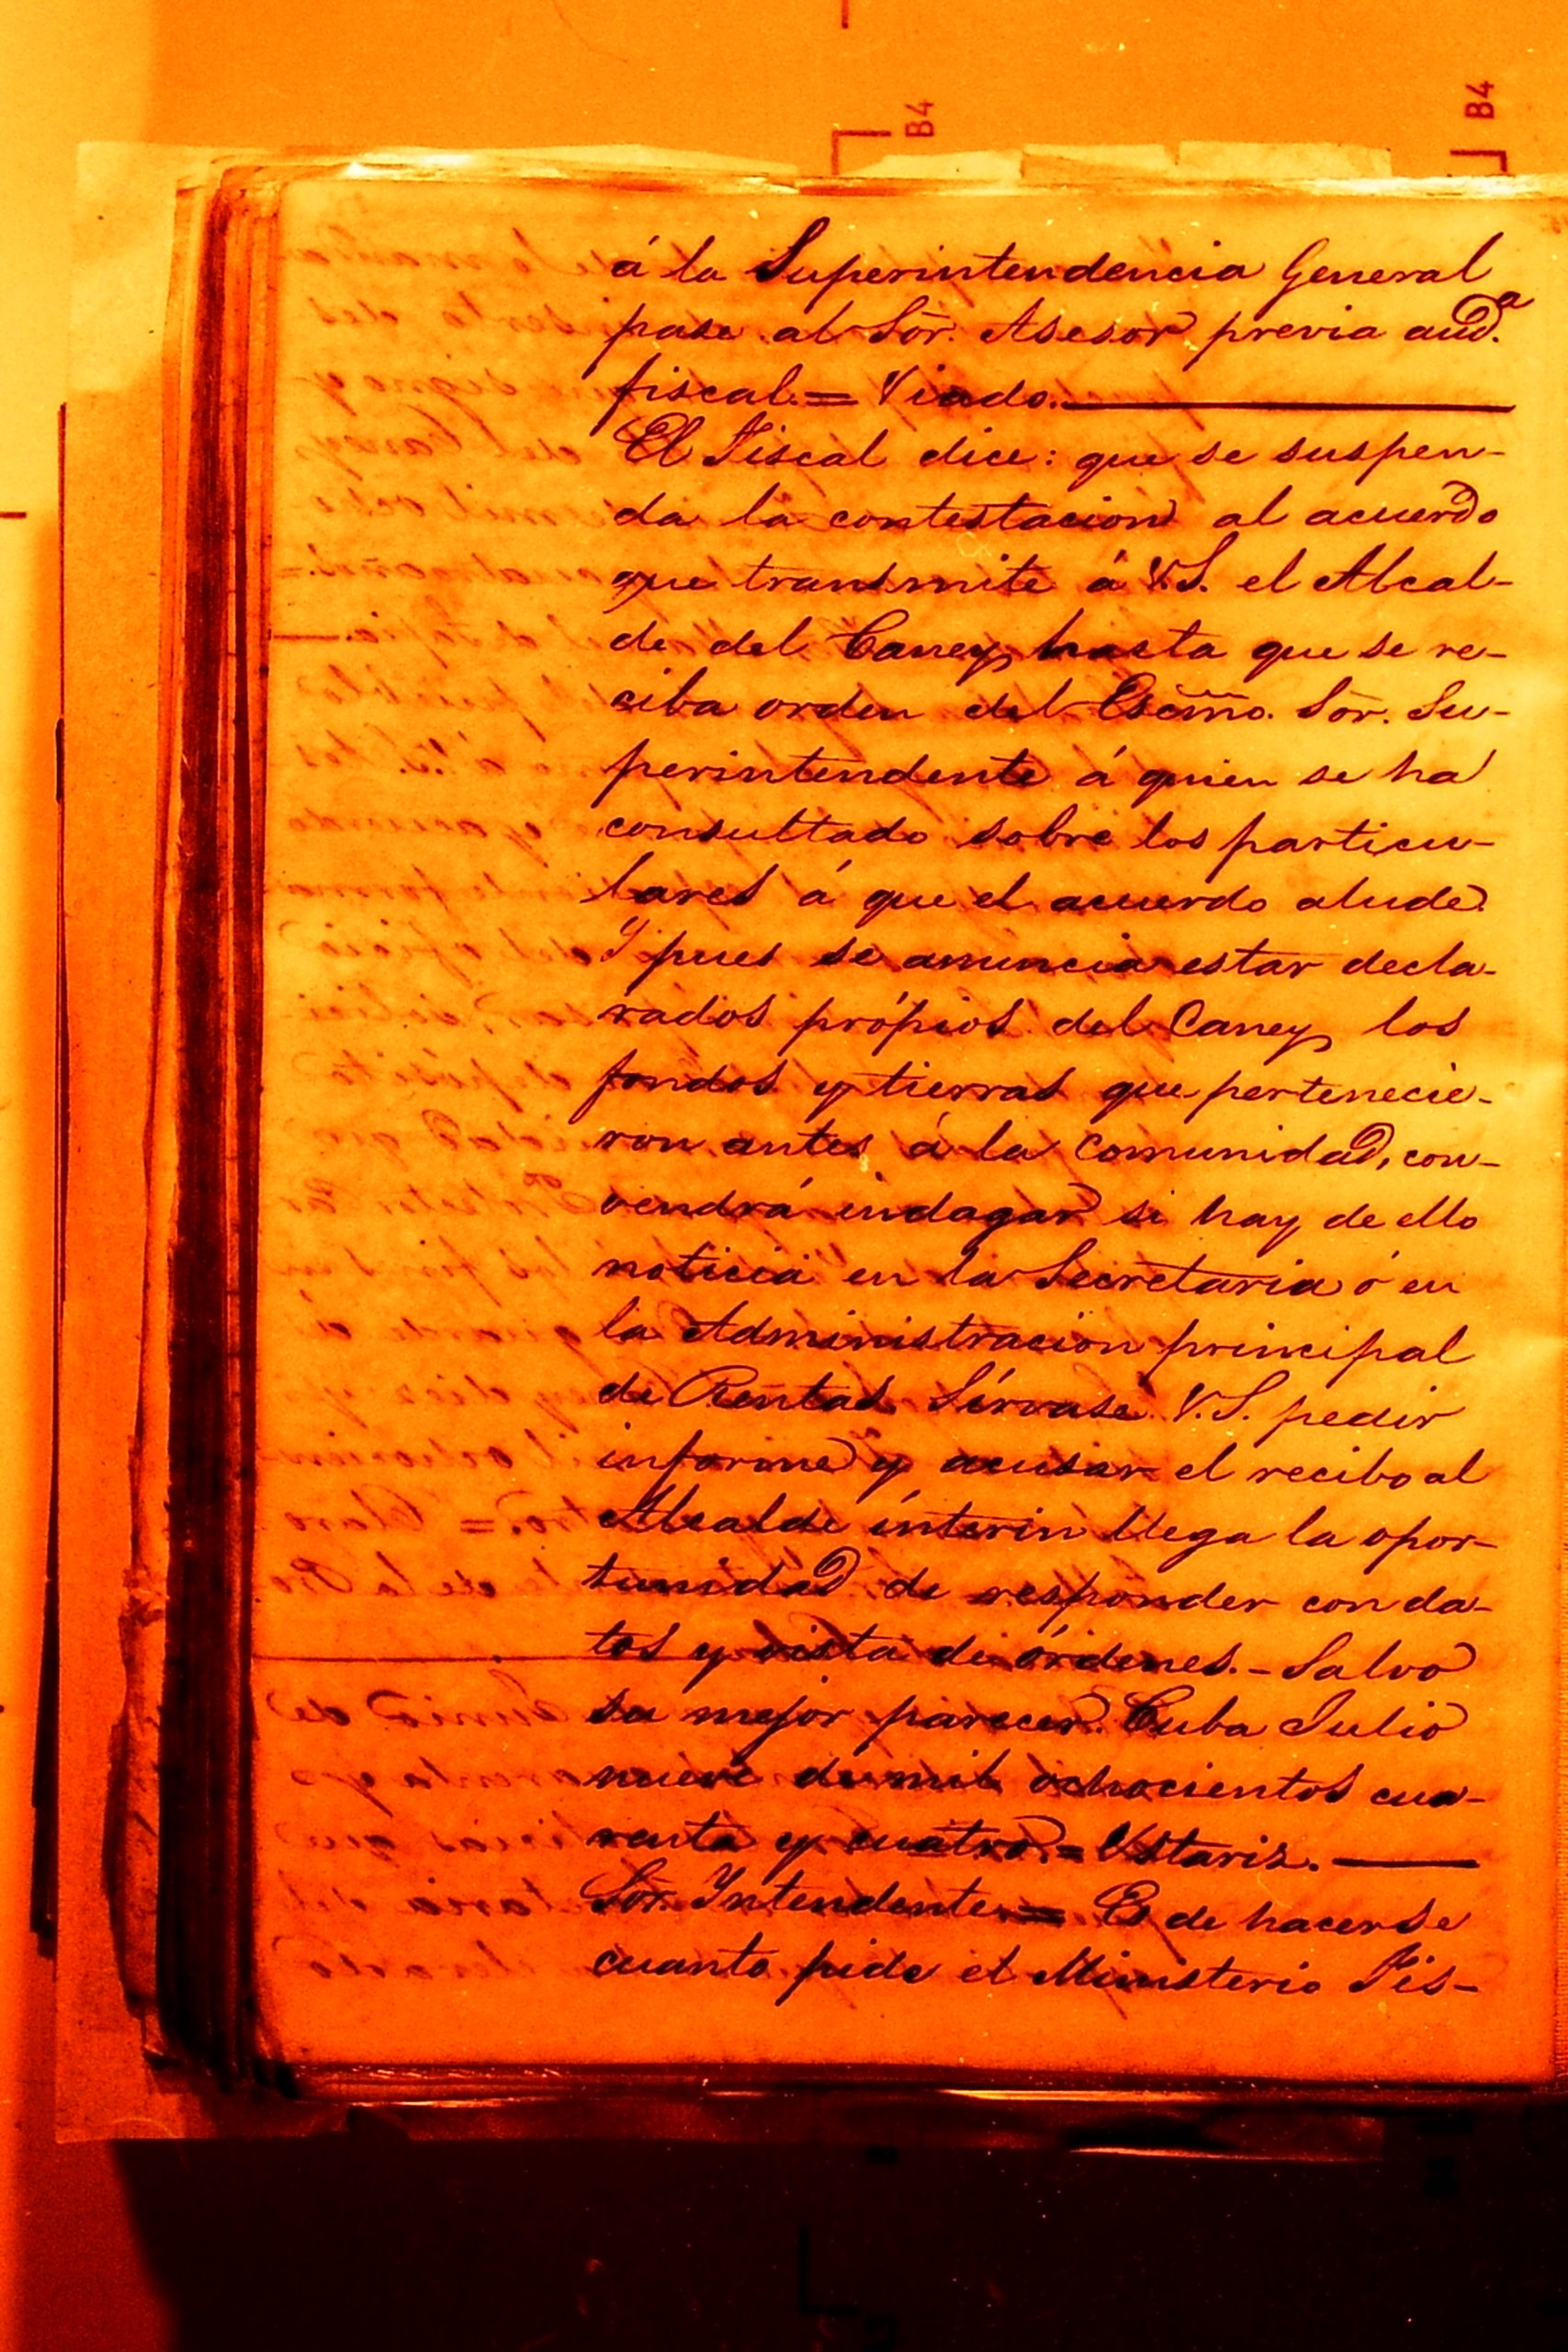 B4
B4
á la Superintendencia General
pase al Sor. Asesor previa aud.ª
fiscal.= Viado.
El Fiscal dice: que se suspen-
da la contestacion al acuerdo
que transmite á V.S. el Alcal-
de del Caney hasta que se re-
ciba orden del Escmo. Sor. Su-
perintendente á quien se ha
consultado sobre los particu-
lares á que el acuerdo alude.
Y pues se anuncia estar decla-
rados própios del Caney los
fondos y tierras que pertenecie-
ron antes á la Comunidad, con-
vendrá indagar si hay de ello
noticia en la Secretaria ó en
la Administracion principal
de Rentas. Sírvase V.S. pedir
informe y acusar el recibo al
Alcalde ínterin llega la opor-
tunidad de responder con da-
tos y vista de órdenes.- Salvo
su mejor parecer. Cuba Julio
nueve de mil ochocientos cua-
renta y cuatro.= Ustariz.
Sor. Intendente.= Es de hacerse
cuanto pide el Ministerio Fis-